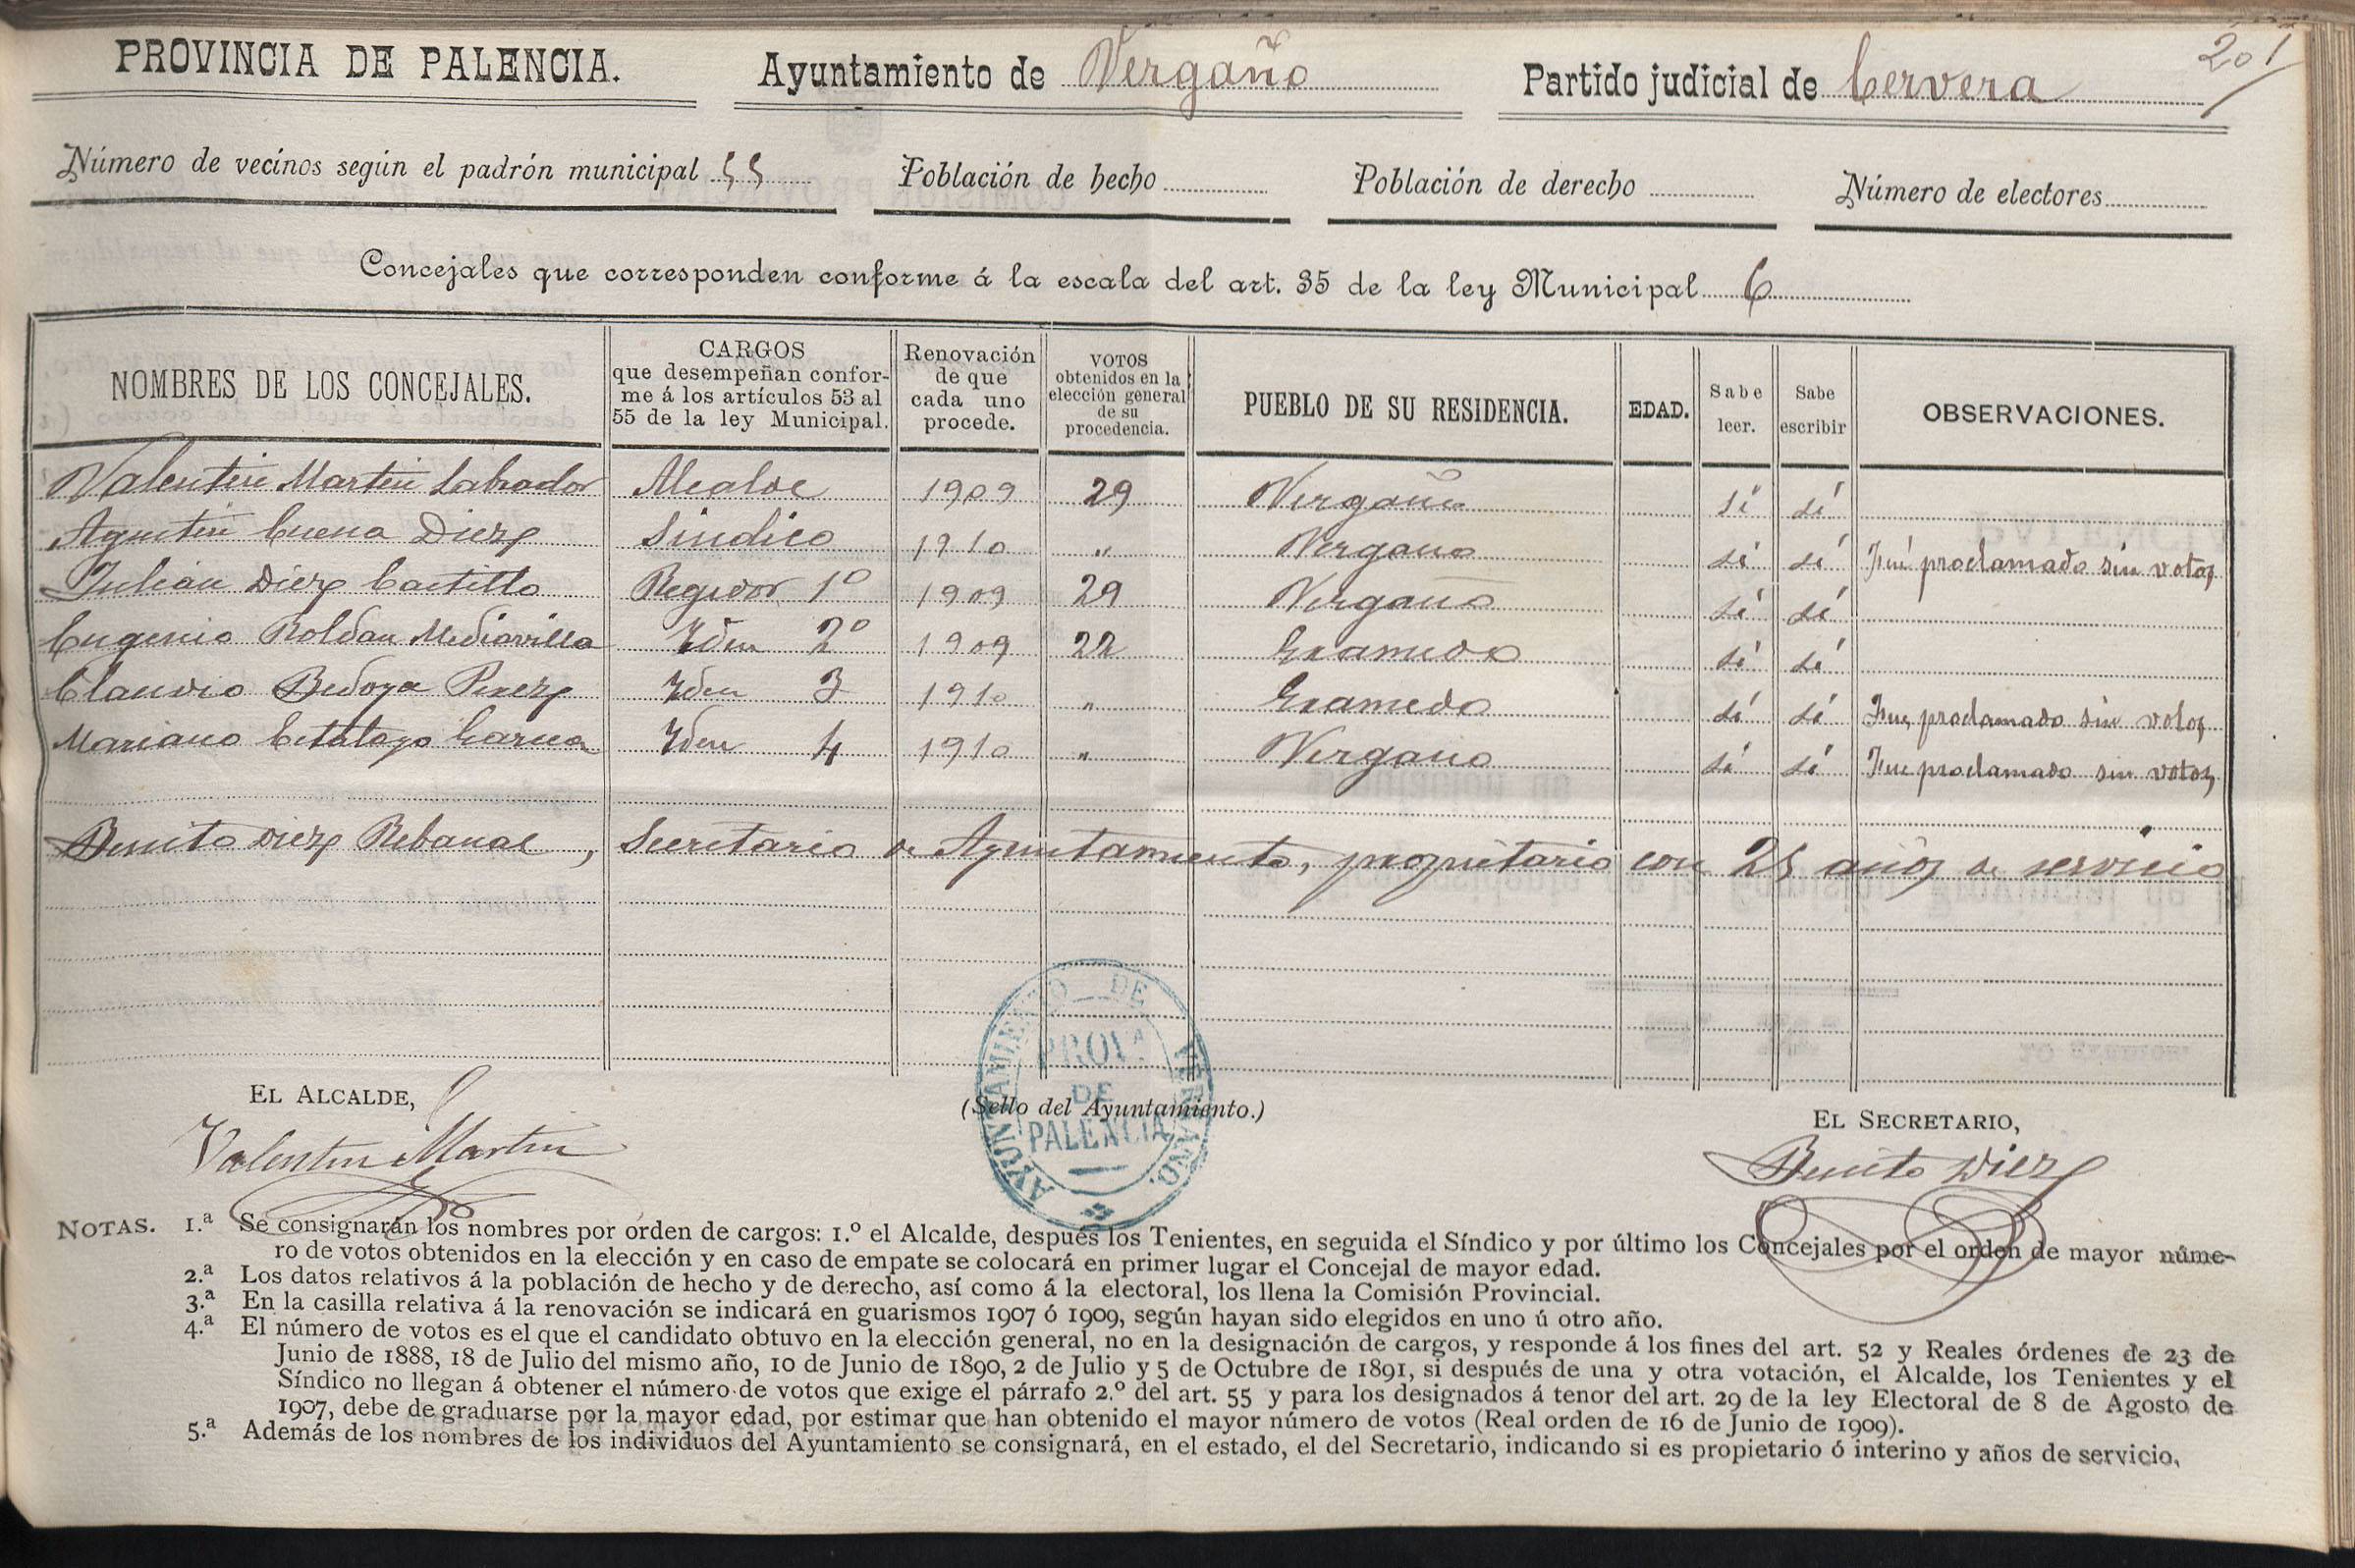 201
PROVINCIA DE PALENCIA. Ayuntamiento de Vergaño Partido judicial de Cervera
Número de vecinos según el padrón municipal 55 Población de hecho Población de derecho Número de electores
Concejales que corresponden conforme á la escala del art. 35 de la ley Municipal 6
NOMBRES DE LOS CONCEJALES. CARGOS que desempeñan confor- me á los artículos 53 al 55 de la ley Municipal. Renovación de que cada uno procede. VOTOS obtenidos en la elección general de su procedencia. PUEBLO DE SU RESIDENCIA. EDAD. Sabe leer. Sabe escribir OBSERVACIONES.
Valentin Martin Labrador Alcalde 1909 29 Vergaño si sí
Agustin Cuena Diez Sindico 1910 " Vergaño si sí Fué proclamado sin votos
Julian Diez Castillo Regidor 1º 1909 29 Vergaño sí sí
Eugenio Roldan Mediavilla Idem 2º 1909 22 Gramedo si sí
Claudio Bedoya Perez Idem 3 1910 " Gramedo sí sí Fue proclamado sin votos
Mariano Garcia Idem 4 1910 " Vergaño sí sí Fue proclamado sin votos
Benito Diez Rebanal, Secretario de Ayuntamiento, propietario con 25 años de servicio
EL ALCALDE,
Valentin Martin
(Sello del Ayuntamiento.)
AYUNTAMIENTO DE VERGAÑO.
PROVª
DE
PALENCIA
EL SECRETARIO,
Benito Diez
NOTAS. 1.ª Se consignarán los nombres por orden de cargos: 1.º el Alcalde, después los Tenientes, en seguida el Síndico y por último los Concejales por el orden de mayor núme-
ro de votos obtenidos en la elección y en caso de empate se colocará en primer lugar el Concejal de mayor edad.
2.ª Los datos relativos á la población de hecho y de derecho, así como á la electoral, los llena la Comisión Provincial.
3.ª En la casilla relativa á la renovación se indicará en guarismos 1907 ó 1909, según hayan sido elegidos en uno ú otro año.
4.ª El número de votos es el que el candidato obtuvo en la elección general, no en la designación de cargos, y responde á los fines del art. 52 y Reales órdenes de 23 de
Junio de 1888, 18 de Julio del mismo año, 10 de Junio de 1890, 2 de Julio y 5 de Octubre de 1891, si después de una y otra votación, el Alcalde, los Tenientes y el
Síndico no llegan á obtener el número de votos que exige el párrafo 2.º del art. 55 y para los designados á tenor del art. 29 de la ley Electoral de 8 de Agosto de
1907, debe de graduarse por la mayor edad, por estimar que han obtenido el mayor número de votos (Real orden de 16 de Junio de 1909).
5.ª Además de los nombres de los individuos del Ayuntamiento se consignará, en el estado, el del Secretario, indicando si es propietario ó interino y años de servicio.